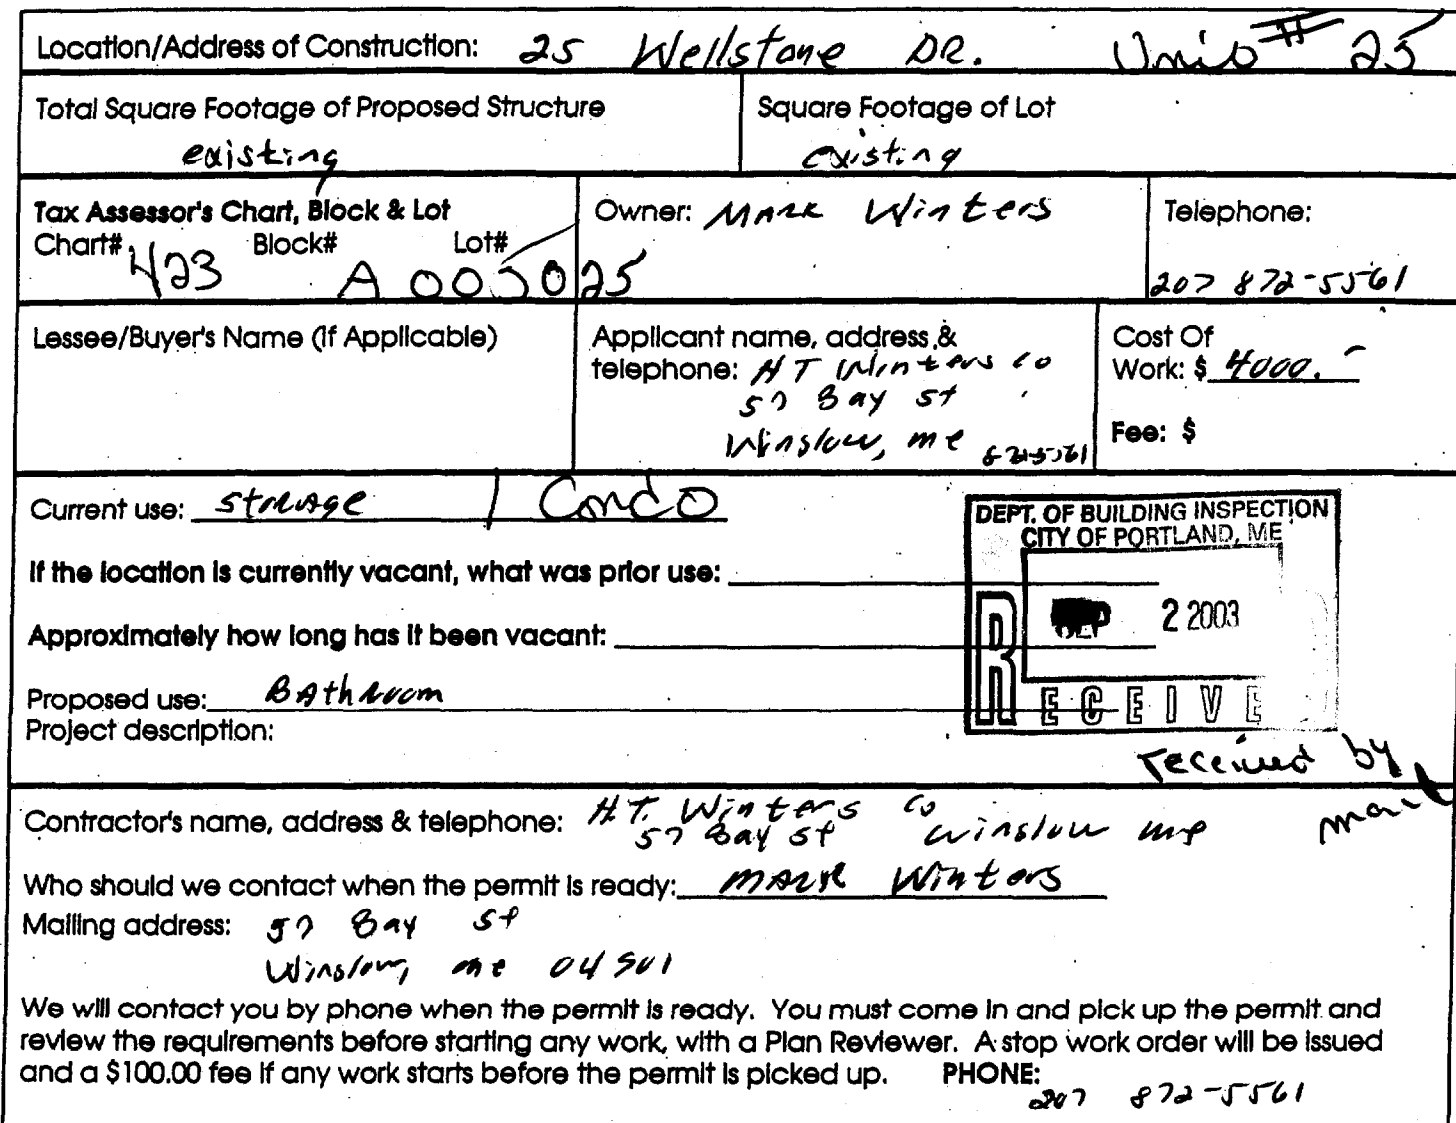 Location/Address of Construction: 25 Wellstone DR. Unit # 25
Total Square Footage of Proposed Structure
existing
Square Footage of Lot
existing
Tax Assessor's Chart, Block & Lot
Chart# Block# Lot#
423 A 005025
Owner: Mark Winters
Telephone:
207 872-5561
Lessee/Buyer's Name (If Applicable)
Applicant name, address &
telephone: HT Winters Co
57 Bay St
Winslow, me 872-5561
Cost Of
Work: $ 4000.-
Fee: $
Current use: storage / Condo
If the location is currently vacant, what was prior use:
Approximately how long has it been vacant:
Proposed use: Bathroom
Project description:
DEPT. OF BUILDING INSPECTION
CITY OF PORTLAND, ME
2 2003
RECEIVE
received by
mail
Contractor's name, address & telephone: H.T. Winters Co
57 Bay St Winslow me
Who should we contact when the permit is ready: Mark Winters
Mailing address: 57 Bay St
Winslow, me 04901
We will contact you by phone when the permit is ready. You must come in and pick up the permit and
review the requirements before starting any work, with a Plan Reviewer. A stop work order will be issued
and a $100.00 fee if any work starts before the permit is picked up. PHONE:
207 872-5561